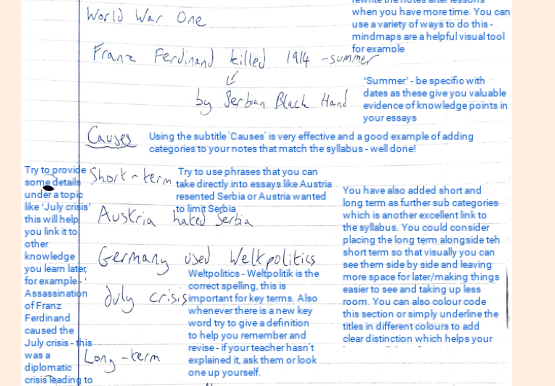 World War One
rewrite the notes after lessons
when you have more time. You can
use a variety of ways to do this -
mindmaps are a helpful visual tool
for example
Franz Ferdinand killed 1914 - summer
by Serbian Black Hand
'Summer' - be specific with
dates as these give you valuable
evidence of knowledge points in
your essays
Causes
Using the subtitle 'Causes' is very effective and a good example of adding
categories to your notes that match the syllabus - well done!
Try to provide
some details
under a topic
like 'July crisis'
this will help
you link it to
other
knowledge
you learn later,
for example -
Assassination
of Franz
Ferdinand
caused the
July crisis - this
was a
diplomatic
crisis leading to
Short-term
Try to use phrases that you can
take directly into essays like Austria
resented Serbia or Austria wanted
to limit Serbia
Austria hated Serbia
Germany used Weltpolitics
July crisis
Weltpolitics - Weltpolitik is the
correct spelling, this is
important for key terms. Also
whenever there is a new key
word try to give a definition
to help you remember and
revise - if your teacher hasn't
explained it, ask them or look
one up yourself.
Long-term
You have also added short and
long term as further sub categories
which is another excellent link to
the syllabus. You could consider
placing the long term alongside teh
short term so that visually you can
see them side by side and leaving
more space for later/making things
easier to see and taking up less
room. You can also colour code
this section or simply underline the
titles in different colours to add
clear distinction which helps your